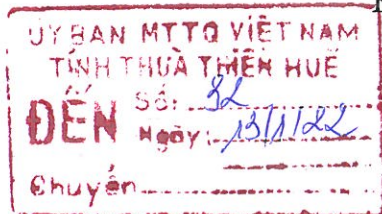 UỶ BAN MTTQ VIỆT NAM
TỈNH THỪA THIÊN HUẾ
ĐẾN Số: 32
Ngày: 13/1/22
Chuyển